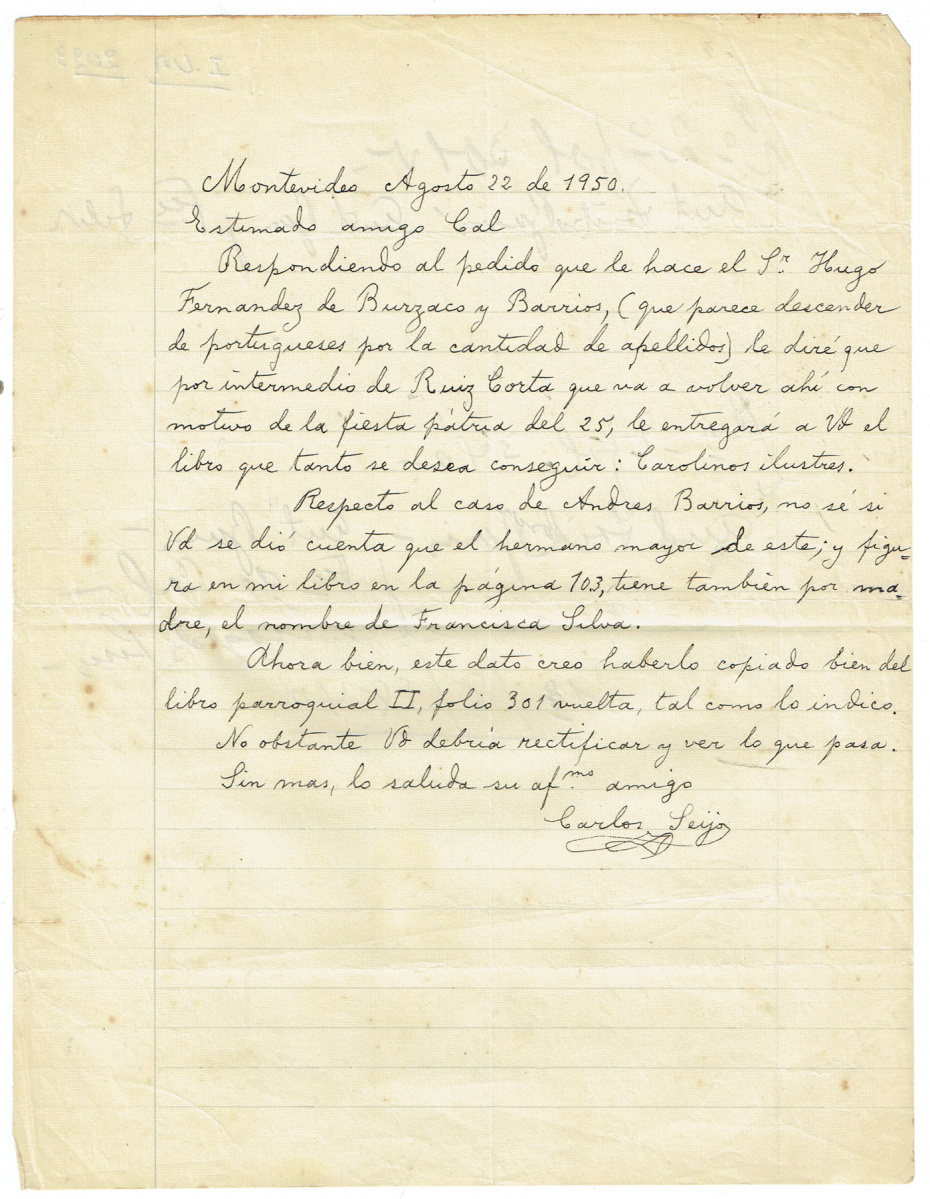 Montevideo Agosto 22 de 1950.
Estimado amigo Cal
Respondiendo al pedido que le hace el Sr. Hugo
Fernandez de Burzaco y Barrios, (que parece descender
de portugueses por la cantidad de apellidos) le diré que
por intermedio de Ruiz Corta que vá a volver ahí con
motivo de la fiesta pátria del 25, le entregará a Vd el
libro que tanto se desea conseguir: Carolinos ilustres.
Respecto al caso de Andres Barrios, no sé si
Vd se dió cuenta que el hermano mayor de este; y figu-
ra en mi libro en la página 103, tiene también por ma-
dre, el nombre de Francisca Silva.
Ahora bien, este dato creo haberlo copiado bien del
libro parroquial II, folio 301 vuelta, tal como lo indico.
No obstante Vd debría rectificar y ver lo que pasa.
Sin mas, lo saluda su af.mo amigo
Carlos Seijo